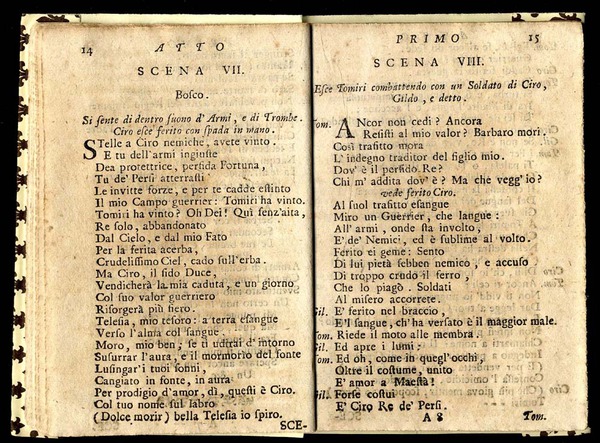 14
ATTO
SCENA VII.
Bosco.
Si sente di dentro suono d'Armi, e di Trombe.
Ciro esce ferito con spada in mano.
STelle a Ciro nemiche, avete vinto.
E tu dell'armi ingiuste
Dea protettrice, perfida Fortuna,
Tu de' Persi atterrasti
Le invitte forze, e per te cadde estinto
Il mio Campo guerrier: Tomiri ha vinto.
Tomiri ha vinto? Oh Dei! Qui senz'aita,
Re solo, abbandonato
Dal Cielo, e dal mio Fato
Per la ferita acerba,
Crudelissimo Ciel, cado sull'erba.
Ma Ciro, il fido Duce,
Vendicherà la mia caduta, e un giorno
Col suo valor guerriero
Risorgerà più fiero.
Telesia, mio tesoro: a terra esangue
Verso l'alma col sangue.
Moro, mio ben; se ti udirai d'intorno
Susurrar l'aura, e il mormorio del fonte
Lusingar'i tuoi sonni,
Cangiato in fonte, in aura
Per prodigio d'amor, dì, questi è Ciro.
Col tuo nome sul labro
(Dolce morir) bella Telesia io spiro.
SCE-
PRIMO
15
SCENA VIII.
Esce Tomiri combattendo con un Soldato di Ciro,
Gildo, e detto.
Tom. ANcor non cedi? Ancora
Resisti al mio valor? Barbaro mori.
Così trafitto mora
L'indegno traditor del figlio mio.
Dov'è il perfido Re?
Chi m'addita dov'è? Ma che vegg'io?
vede ferito Ciro.
Al suol trafitto esangue
Miro un Guerrier, che langue:
All'armi, onde sta involto,
E' de' Nemici, ed è sublime al volto.
Ferito ei geme: Sento
Di lui pietà sebben nemico, e accuso
Di troppo crudo il ferro,
Che lo piagò. Soldati
Al misero accorrete.
Gil. E' ferito nel braccio,
E'l sangue, ch'ha versato è il maggior male.
Tom. Riede il moto alle membra.
Gil. Ed apre i lumi.
Tom. Ed oh, come in quegl'occhi,
Oltre il costume, unito
E' amor a Maestà!
Gil. Forse costui
E' Ciro Re de' Persi.
A 8
Tom.